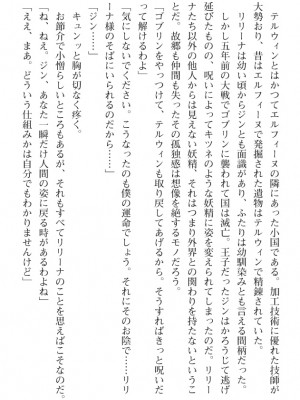 テルウィンとはかつてエルフィーヌの隣にあった小国である。加工技術に優れた技師が
大勢おり、昔はエルフィーヌで発掘された遺物はテルウィンで精錬されていた。
リリーナは幼い頃からジンとも面識があり、ふたりは幼馴染みとも言える間柄だった。
しかし五年前の大戦でゴブリンに襲われて国は滅亡。王子だったジンはかろうじて逃げ
延びたものの、呪いによってキツネのような妖精に姿を変えられてしまったのだ。リリー
ナたち以外の他人からは見えない妖精、それはつまり外界との関わりを持たないというこ
とだ。故郷も仲間も失ったその孤独感は想像を絶するモノだろう。
「ゴブリンをやっつけて、テルウィンも取り戻してあげるから。そうすればきっと呪いだ
って解けるわよ」
「気にしないでください。こうなったのも僕の運命でしょう。それにそのお陰で……リリ
ーナ様のそばにいられるのだから……」
「ジン……」
キュンッと胸が切なく疼く。
お節介で小憎らしいところもあるが、それもすべてリリーナのことを思えばこそなのだ。
「ね、ねえ。ジン、あなた一瞬だけ人間の姿に戻る時があるわよね」
「ええ、まあ。どういう仕組みかは自分でもわかりませんけど」